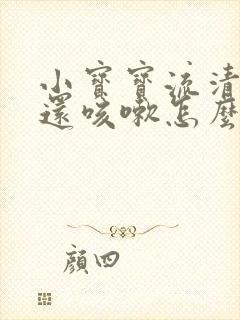 小寶寶流清
還咳嗽怎麼
顏四